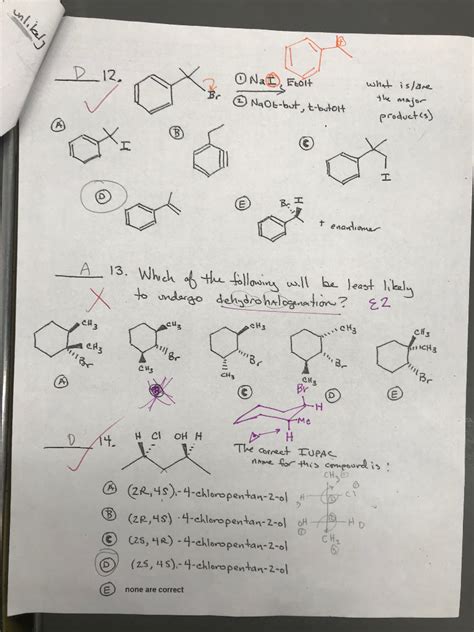 unlikely
D 12.
Br
① NaI, EtOH
② NaOt-but, t-butOH
what is/are
the major
product(s)
A
I
B
C
I
D
E
Br
I
+ enantiomer
A 13. Which of the following will be least likely
to undergo dehydrohalogenation? E2
CH3
CH3
Br
A
CH3
Br
CH3
B
CH3
Br
CH3
C
CH3
Br
CH3
D
CH3
CH3
Br
E
Br
H
Me
H
D 14.
H Cl OH H
The correct IUPAC
name for this compound is:
A (2R,4S)-4-chloropentan-2-ol
B (2R,4S)-4-chloropentan-2-ol
C (2S,4R)-4-chloropentan-2-ol
D (2S,4S)-4-chloropentan-2-ol
E none are correct
CH3
H Cl
OH H
CH3